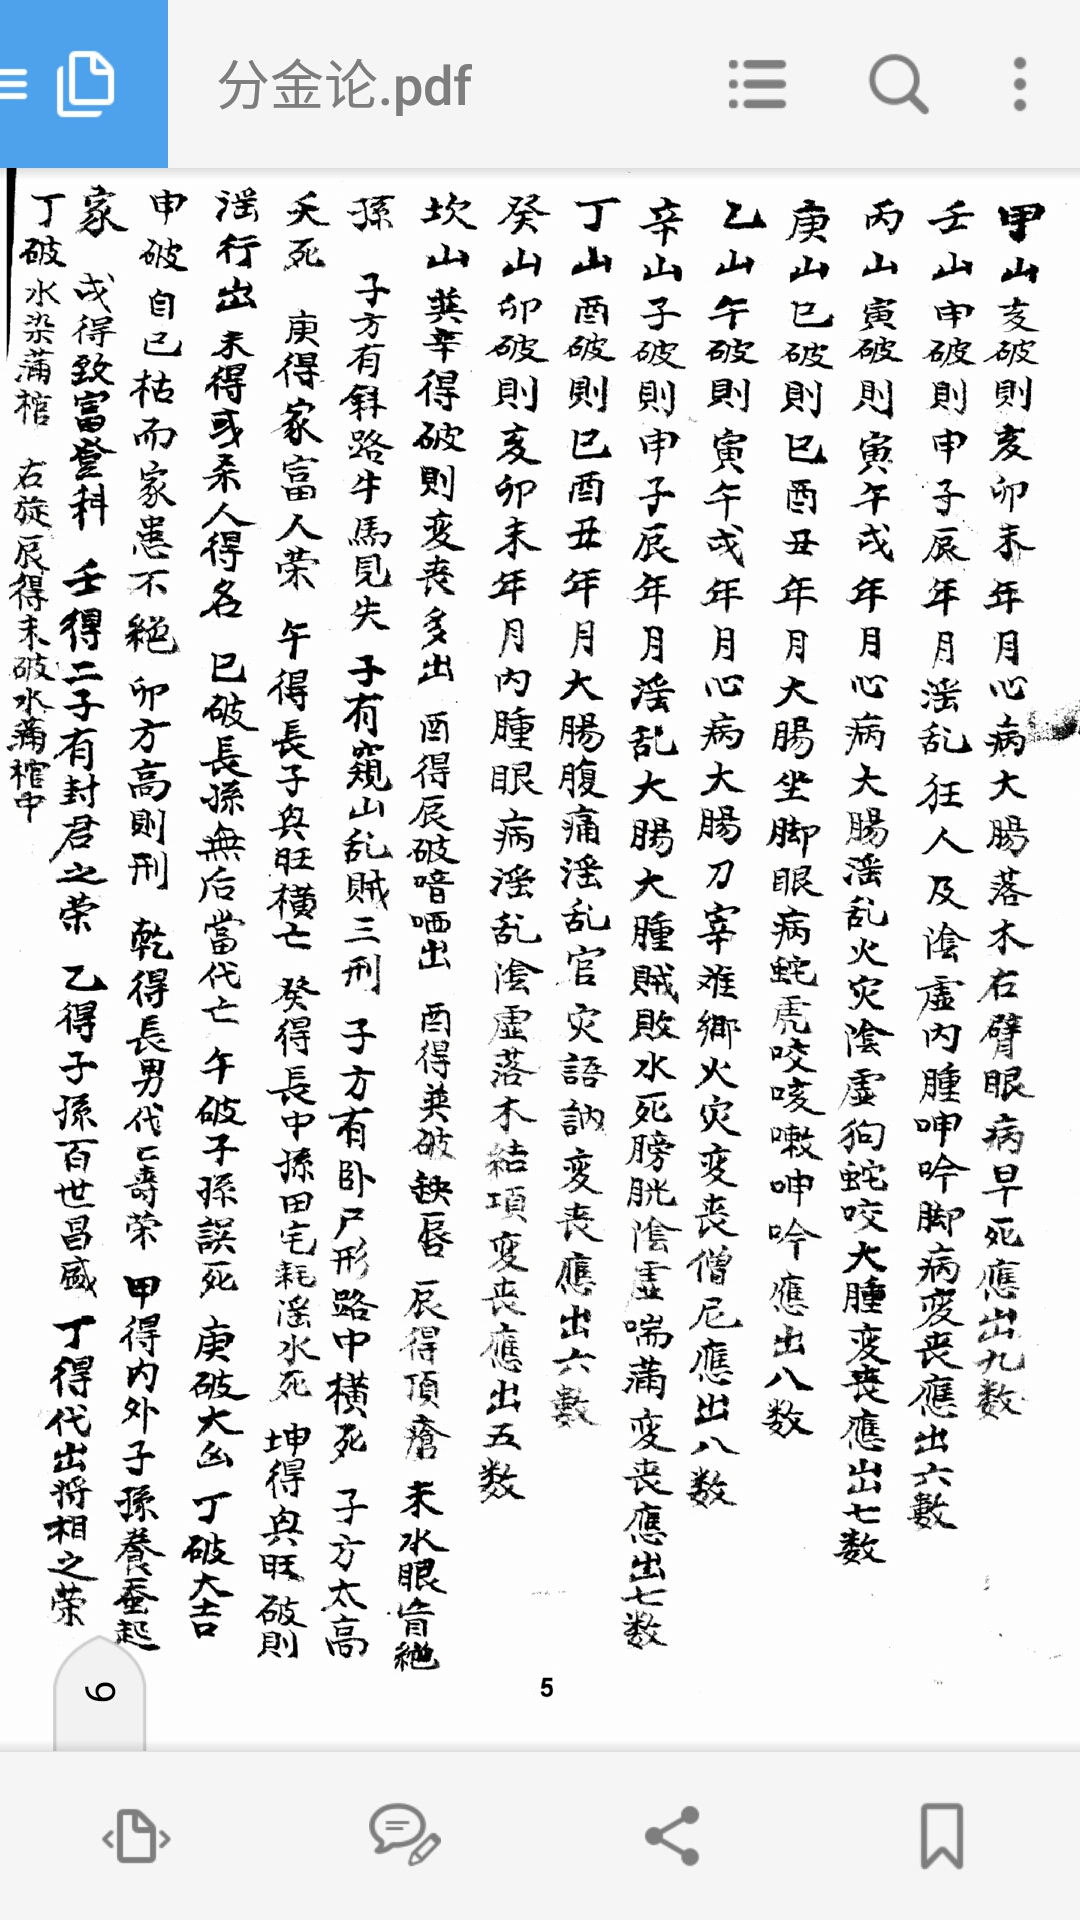 分金论.pdf
甲山亥破則亥卯未年月心病大腸落木右臂眼病早死應出九数
壬山申破則申子辰年月淫乱狂人及陰虛內腫呻吟脚病变丧應出六數
丙山寅破則寅午戌年月心病大腸淫乱火灾陰虛狗蛇咬大腫变丧應出七数
庚山巳破則巳酉丑年月大腸坐脚眼病蛇虎咬咳嗽呻吟應出八数
乙山午破則寅午戌年月心病大腸刀宰难鄉火灾变丧僧尼應出八数
辛山子破則申子辰年月淫乱大腸大腫賊敗水死膀胱陰虛喘满变丧應出七数
丁山酉破則巳酉丑年月大腸腹痛淫乱官灾語訥变丧應出六數
癸山卯破則亥卯未年月內腫眼病淫乱陰虛落木結項变丧應出五数
坎山巽辛得破則变丧多出 酉得辰破喑哂出 酉得巽破缺唇 辰得頂瘡 未水眼盲絶
孫 子方有斜路牛馬見失 子有窺山乱賊三刑 子方有卧尸形路中橫死 子方太高
夭死 庚得家富人荣 午得長子與旺橫亡 癸得長中孫田宅耗淫水死 坤得與旺破則
淫行出 未得或柔人得名 巳破長孫無后當代亡 午破子孫誤死 庚破大凶 丁破大吉
申破自己枯而家患不絕 卯方高則刑 乾得長男代亡壽荣 甲得内外子孫養蚕起
家 戌得致富登科 壬得二子有封君之荣 乙得子孫百世昌盛 丁得代出将相之荣
丁破水染蒲棺 右旋辰得未破水满棺中
5
6